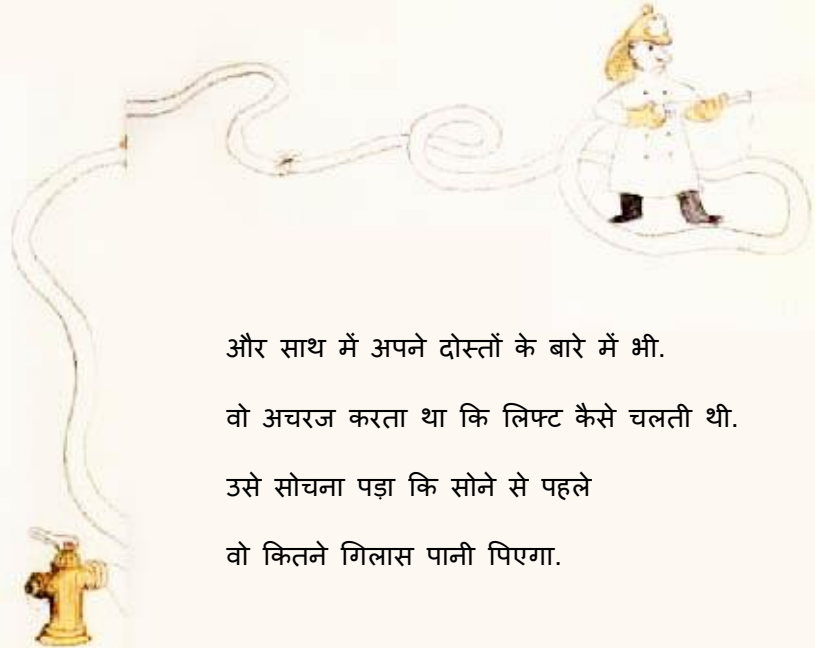 और साथ में अपने दोस्तों के बारे में भी.
वो अचरज करता था कि लिफ्ट कैसे चलती थी.
उसे सोचना पड़ा कि सोने से पहले
वो कितने गिलास पानी पिएगा.